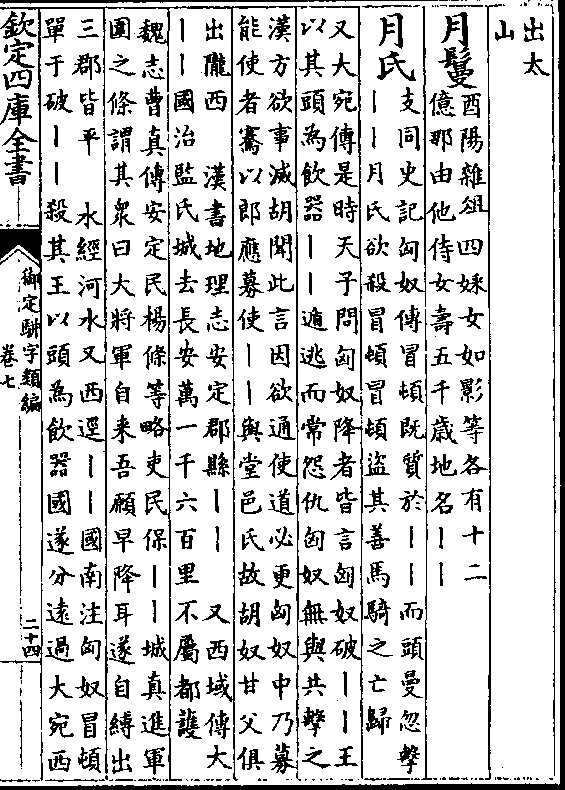 出太
山
月鬘
酉陽雜俎四婇女如影等各有十二
億那由他侍女壽五千歳地名丨丨
月氏
支同史記匈奴傳冒頓既質於丨丨而頭曼忽擊
丨丨月氏欲殺冒頓冒頓盜其善馬騎之亡歸
又大宛傳是時天子問匈奴降者皆言匈奴破丨丨王
以其頭為飲器丨丨遁逃而常怨仇匈奴無與共擊之
漢方欲事滅胡聞此言因欲通使道必更匈奴中乃募
能使者騫以郎應募使丨丨與堂邑氏故胡奴甘父俱
出隴西　漢書地理志安定郡縣丨丨　又西域傳大
丨丨國治監氏城去長安萬一千六百里不屬都護
魏志曹真傳安定民楊條等略吏民保丨丨城真進軍
圍之條謂其衆曰大將軍自来吾願早降耳遂自縛出
三郡皆平　水經河水又西逕丨丨國南注匈奴冒頓
單于破丨丨殺其王以頭為飲器國遂分遠過大宛西
欽定四庫全書
御定駢字類編
卷七
二十四